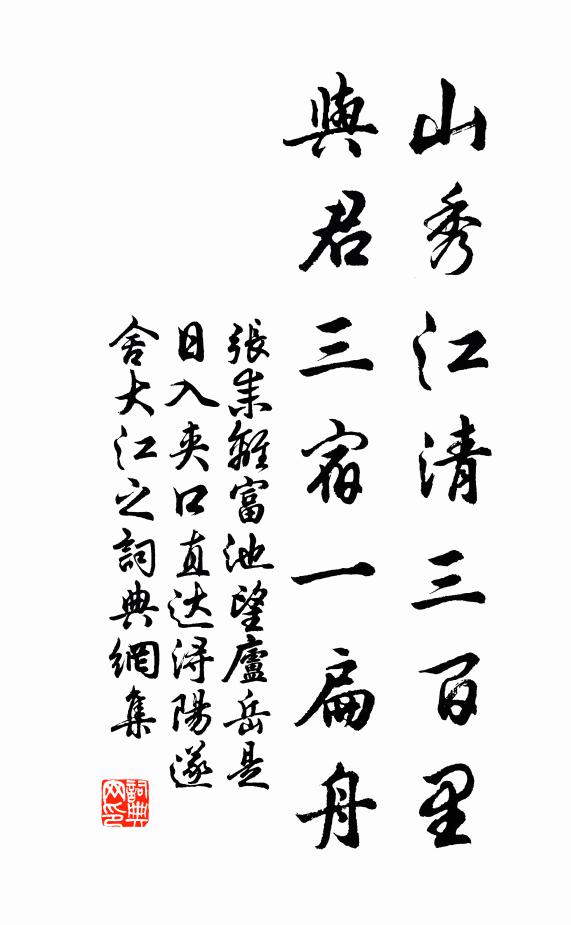 山秀江清三百里
與君三宿一扁舟
張耒離富池望廬岳是
日入夾口直达潯陽遂
舍大江之詞典網集
詞典
网印